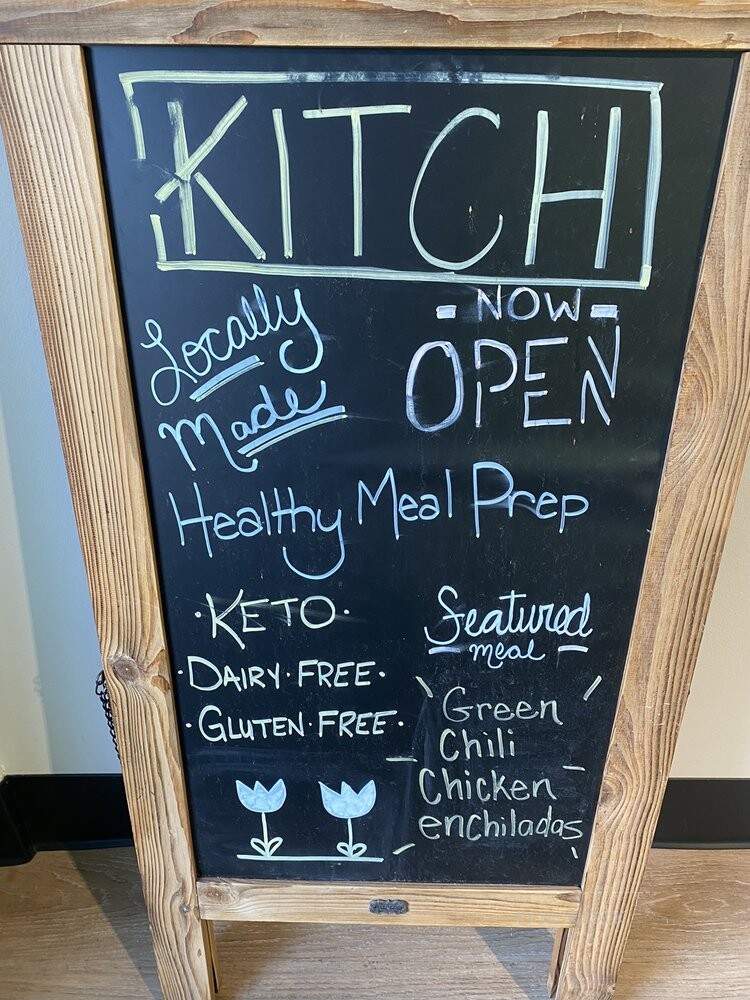 KITCH
Locally
Made
- NOW -
OPEN
Healthy Meal Prep
·KETO·
·DAIRY·FREE·
·GLUTEN·FREE·
featured
meal
Green
Chili
Chicken
enchiladas